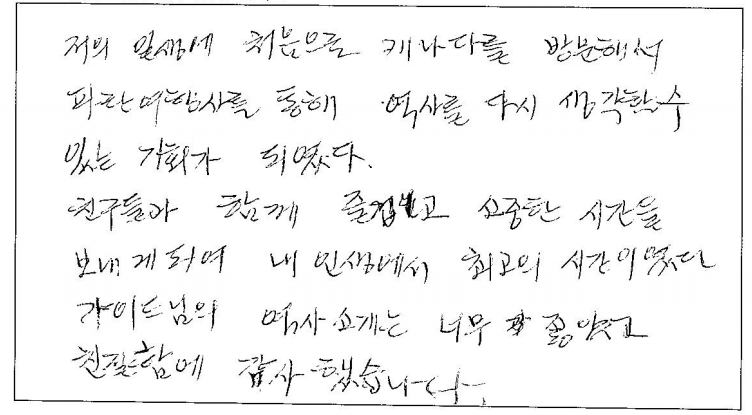 저의 일생에 처음으로 캐나다를 방문해서
파란여행사를 통해 역사를 다시 생각할수
있는 기회가 되였다.
친구들과 함께 즐겁고 소중한 시간을
보내게 되여 내 인생에서 최고의 시간이였다
가이드님의 역사소개는 너무 좋았고
친절함에 감사했습니다.